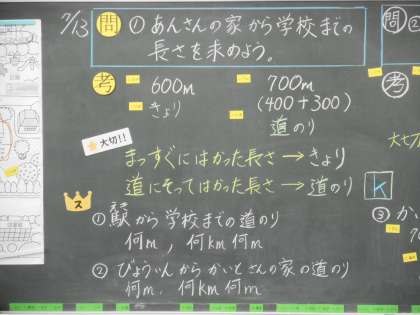 7/13 問 ① あんさんの家から学校までの
長さを求めよう。
考 600m 700m
きょり (400+300)
道のり
大切!!
まっすぐにはかった長さ→きょり
道にそってはかった長さ→道のり
ス
①駅から学校までの道のり
えき
何m, 何km何m
② びょういんからかいとさんの家の道のり
何m. 何km何m
問 ②
考
大セカ
K
③ か